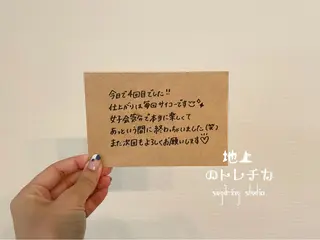 今日で4回目でした!!
仕上がりは毎回サイコーです
女子会気分で本当に楽しくて
あっという間に終わっちゃいました(笑)
また次回もよろしくお願いします♡
地上
のトレチカ